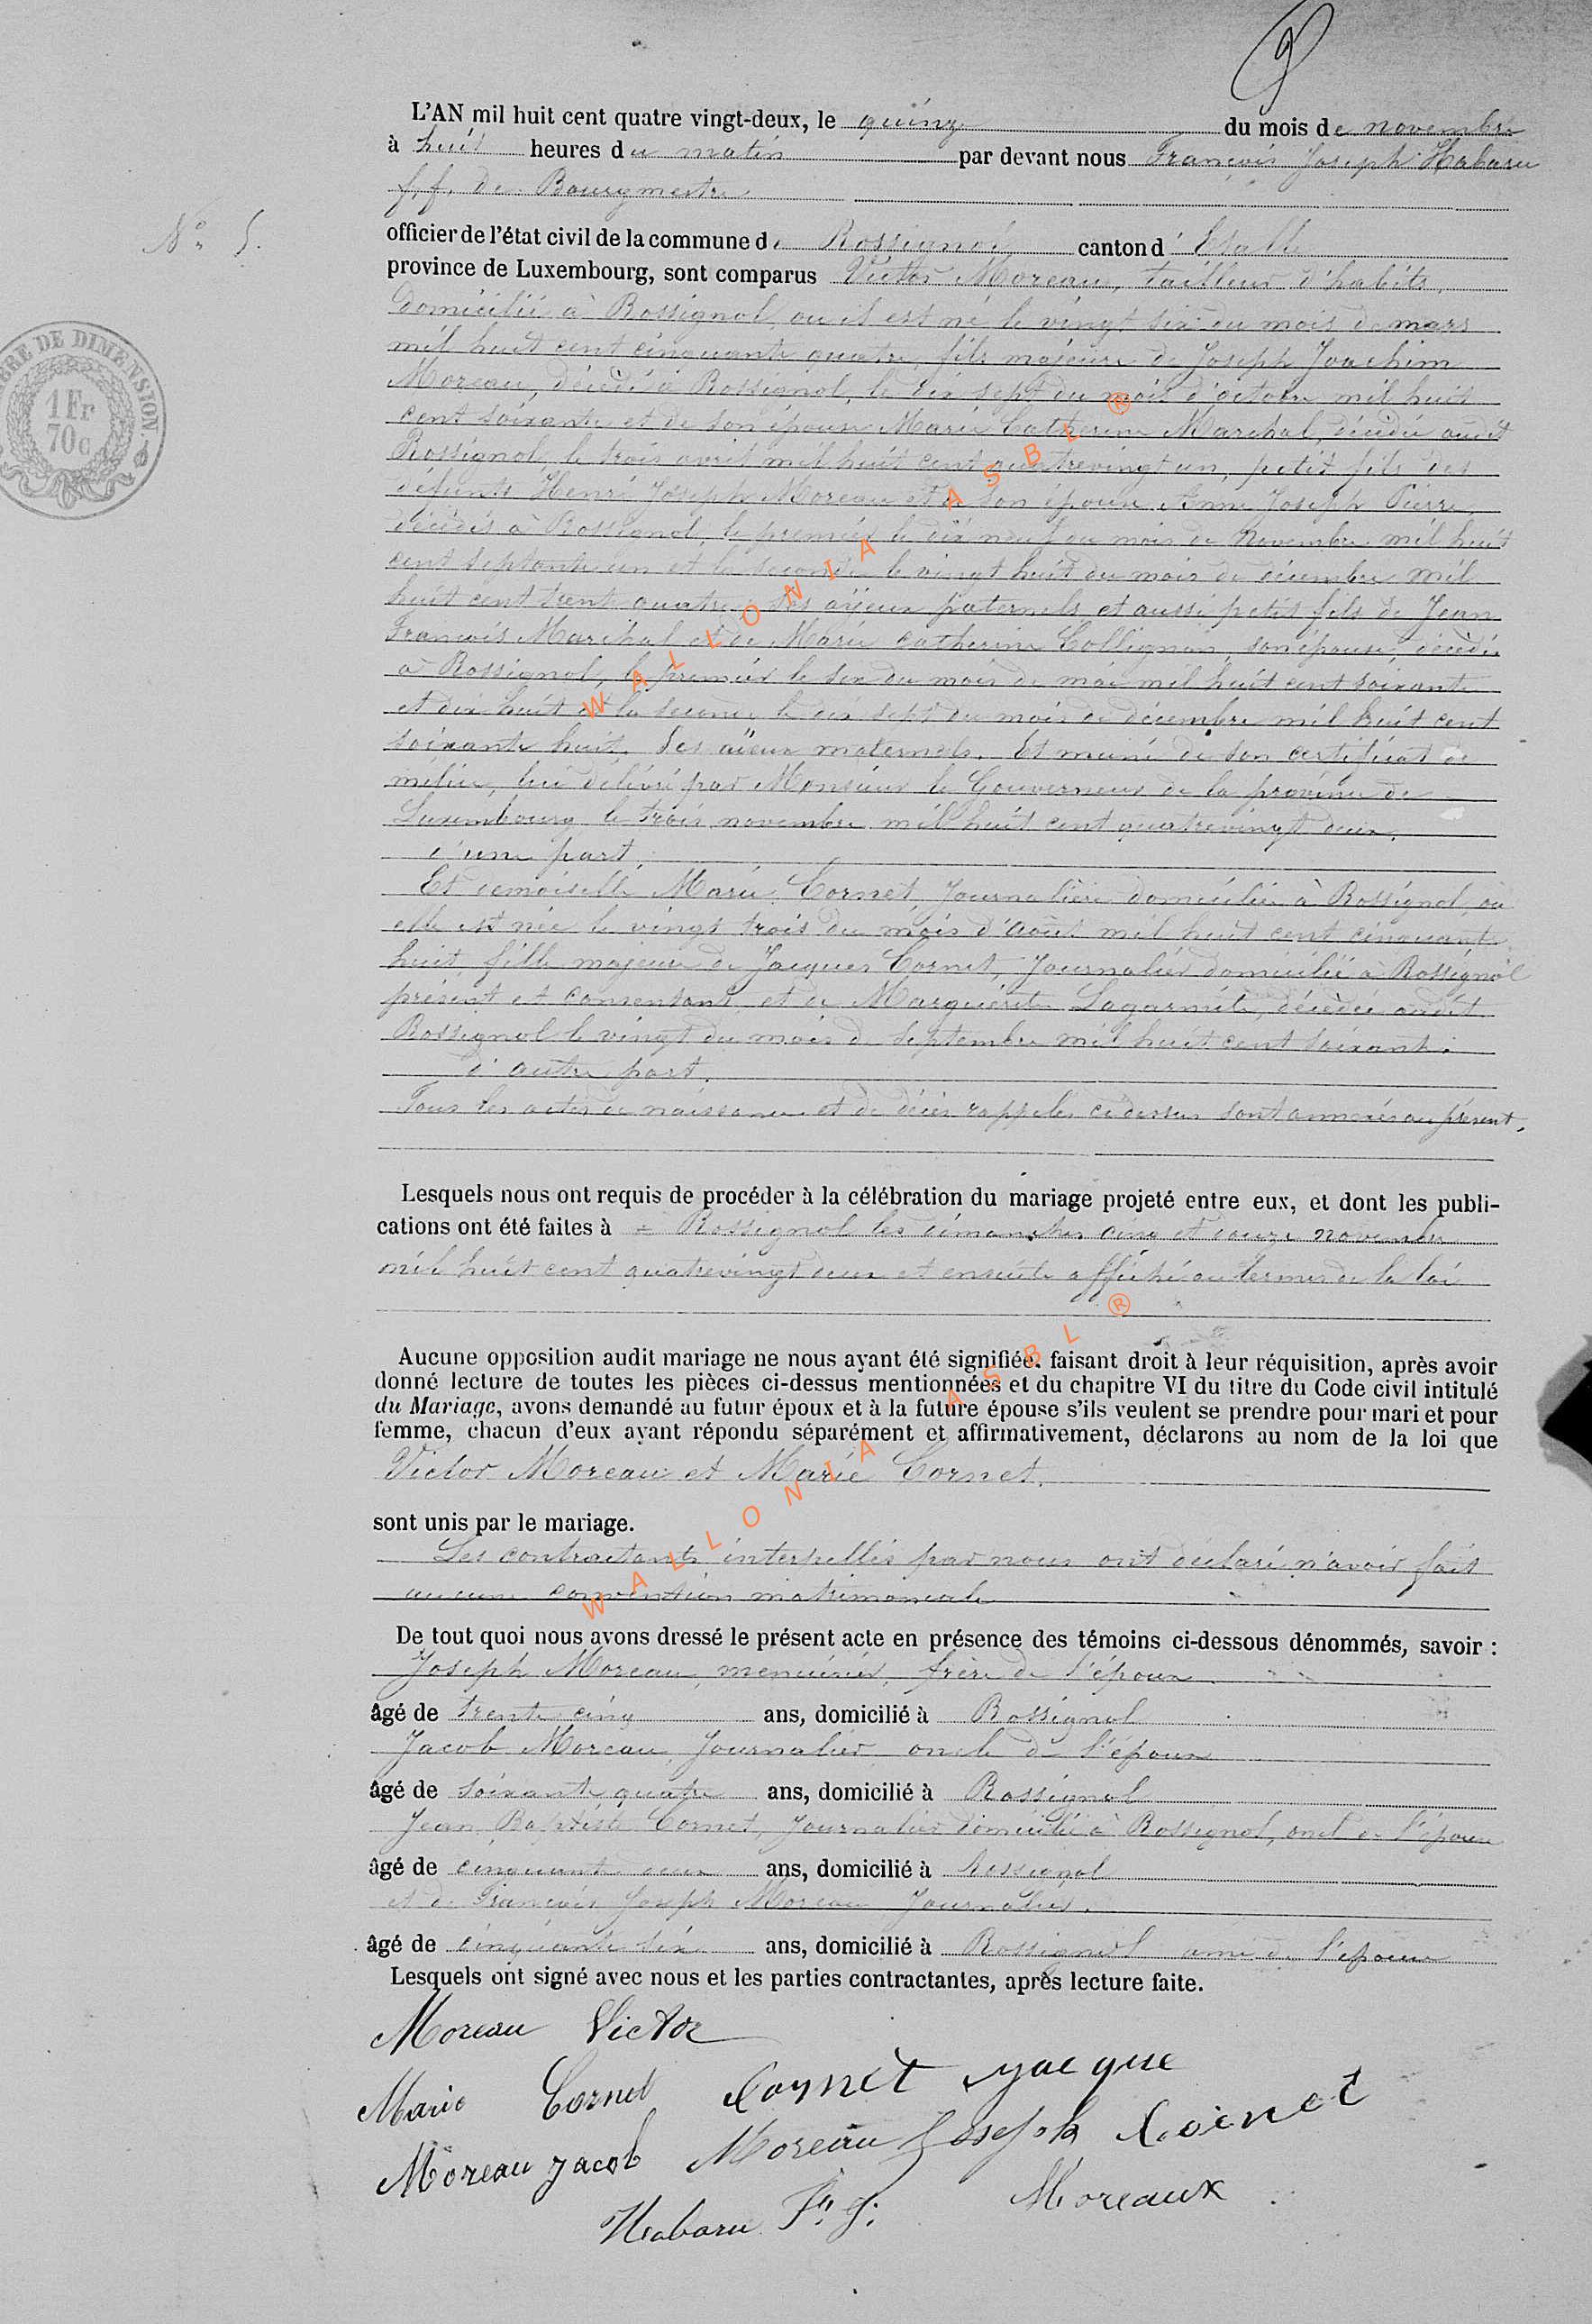 L'AN mil huit cent quatre vingt-deux, le quinze du mois de novembre
à huit heures du matin par devant nous François Joseph Habaru
f.f. de Bourgmestre
N° 5.
officier de l'état civil de la commune de Rossignol canton d'Etalle
province de Luxembourg, sont comparus Victor Moreau, tailleur d'habits,
TIMBRE DE DIMENSION.
1 Fr
70c
domicilié à Rossignol, ou il est né le vingt six du mois de mars
mil huit cent cinquante quatre, fils majeure de Joseph Joachim
Moreau, décédé à Rossignol, le dix sept du mois d'octobre mil huit
cent soixante et de son épouse Marie Catherine Marchal, décédée audit
Rossignol le trois avril mil huit cent quatrevingt un, petit fils des
défunts Henri Joseph Moreau et de son épouse Anne Joseph Pierre,
décédés à Rossignol, le premier le dix neuf du mois de Novembre mil huit
cent septante un et la seconde le vingt huit du mois de décembre mil
huit cent trente quatre, ses aïeux paternels et aussi petit fils de Jean
François Maréchal et de Marie Catherine Collignon, son épouse, décédés
à Rossignol, le premier le six du mois de mai mil huit cent soixante
et dix huit et la seconde le dix sept du mois de décembre mil huit cent
soixante huit. Ses aïeux maternels. Et muni de son certificat de
milice, lui délivré par Monsieur le Gouverneur de la province de
Luxembourg le trois novembre mil huit cent quatrevingt deux,
d'une part.
Et demoiselle Marie Cornet, Journalière domiciliée à Rossignol, où
elle est née le vingt trois du mois d'Août mil huit cent cinquante
huit, fille majeure de Jacques Cornet, Journalier domicilié à Rossignol
présent et consentant et de Marguerite Lagarmite, décédée audit
Rossignol le vingt du mois de Septembre mil huit cent soixante.
d'autre part.
Tous les actes de naissance et de décès rappelés ci dessus sont annexés au présent.
Lesquels nous ont requis de procéder à la célébration du mariage projeté entre eux, et dont les publi-
cations ont été faites à = Rossignol les dimanches cinq et douze novembre
mil huit cent quatrevingt deux et ensuite affiché au termes de la loi
Aucune opposition audit mariage ne nous ayant été signifiée, faisant droit à leur réquisition, après avoir
donné lecture de toutes les pièces ci-dessus mentionnées et du chapitre VI du titre du Code civil intitulé
du Mariage, avons demandé au futur époux et à la future épouse s'ils veulent se prendre pour mari et pour
femme, chacun d'eux ayant répondu séparément et affirmativement, déclarons au nom de la loi que
Victor Moreau et Marie Cornet.
sont unis par le mariage.
Les contractants interpellés par nous ont déclaré n'avoir fait
aucune convention matrimoniale
De tout quoi nous avons dressé le présent acte en présence des témoins ci-dessous dénommés, savoir :
Joseph Moreau, menuisier, frère de l'époux
âgé de trente cinq ans, domicilié à Rossignol
Jacob Moreau, Journalier oncle de l'époux
âgé de soixante quatre ans, domicilié à Rossignol
Jean Baptiste Cornet, Journalier domicilié à Rossignol, oncle de l'épouse
âgé de cinquante deux ans, domicilié à Rossignol
et de François Joseph Moreau Journalier.
âgé de cinquante six ans, domicilié à Rossignol ami de l'époux
Lesquels ont signé avec nous et les parties contractantes, après lecture faite.
Moreau Victor
Marie Cornet Cornet Jacque
Moreau Jacob Moreau Joseph Cornet
Habaru F. J. Moreaux
WALLONIA ASBL ®
WALLONIA ASBL ®